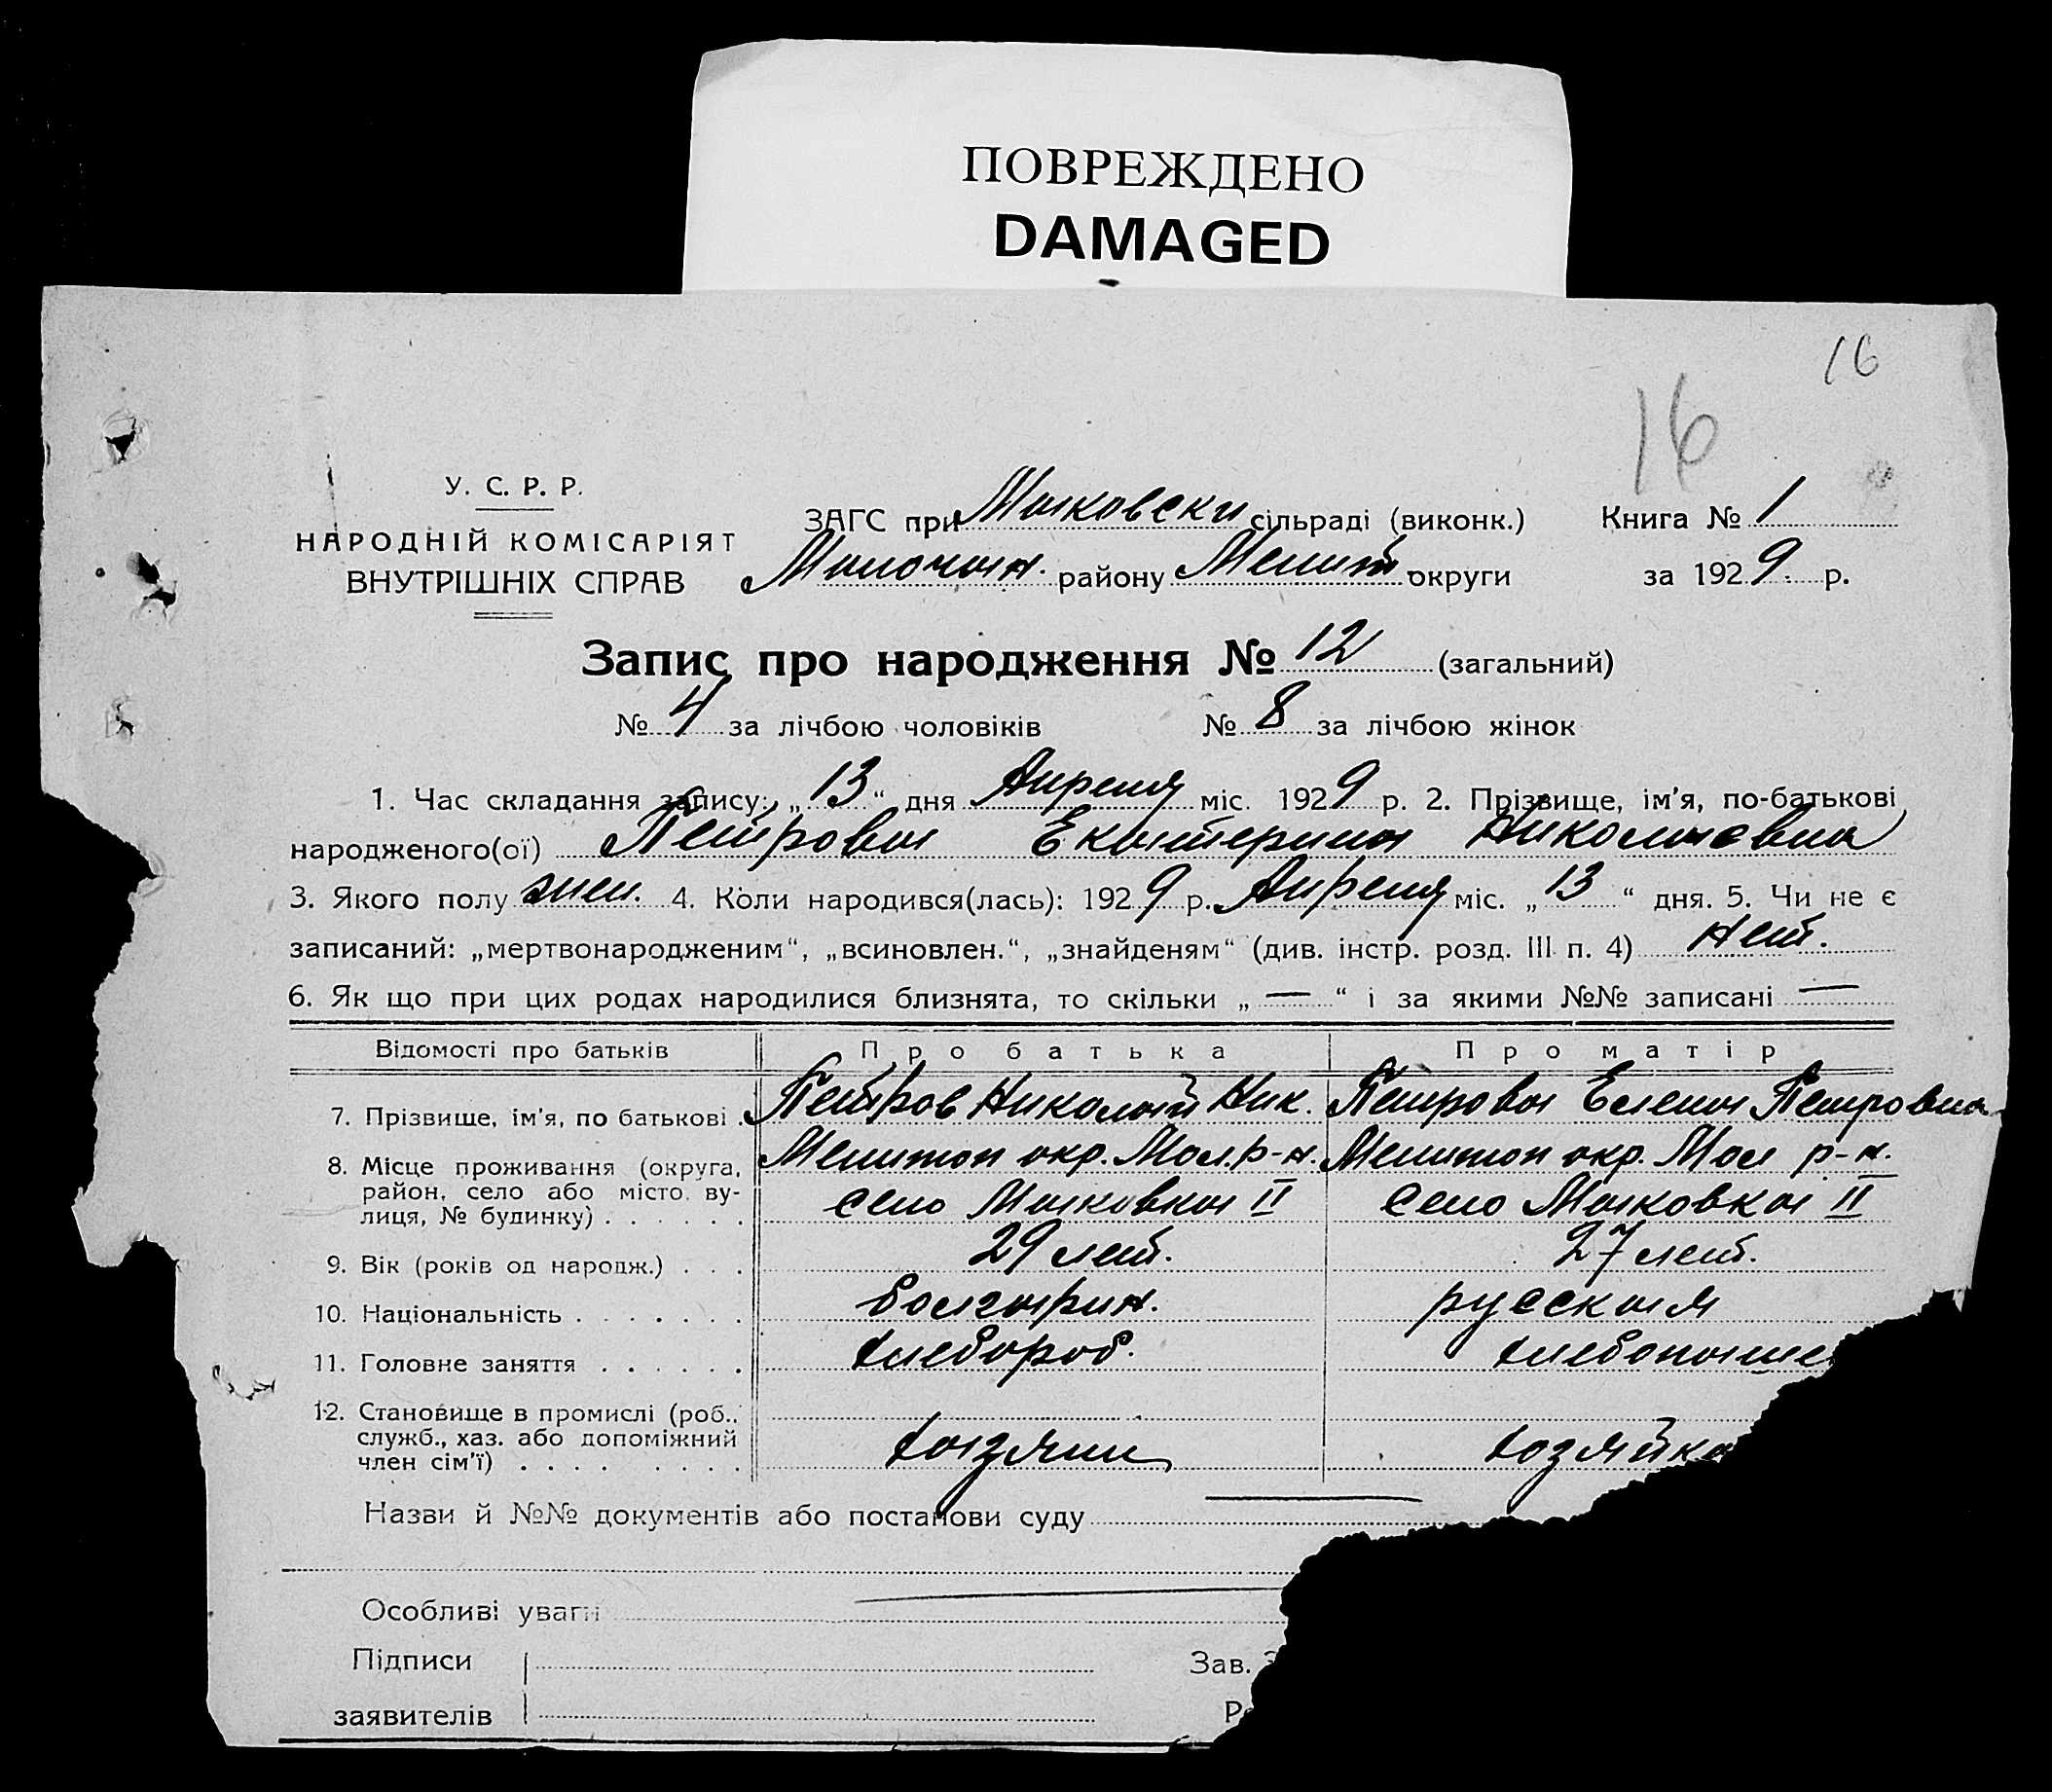 ПОВРЕЖДЕНО
DAMAGED
16
16
У. С. Р. Р.
НАРОДНІЙ КОМІСАРІЯТ
ВНУТРІШНІХ СПРАВ
ЗАГС при Маковски сільраді (виконк.) Книга № 1
Молочан. району Мелит. округи за 1929 р.
Запис про народження № 12 (загальний)
№ 4 за лічбою чоловіків № 8 за лічбою жінок
1. Час складання запису: „13“ дня Апреля міс. 1929 р. 2. Прізвище, ім'я, по-батькові
народженого(ої) Петрова Екатерина Николаевна
3. Якого полу жен. 4. Коли народився(лась): 1929 р. Апреля міс. „13“ дня. 5. Чи не є
записаний: „мертвонародженим“, „всиновлен.“, „знайденям“ (див. інстр. розд. III п. 4) Нет.
6. Як що при цих родах народилися близнята, то скільки „—“ і за якими №№ записані —
Відомості про батьків Про батька Про матір
7. Прізвище, ім'я, по батькові . Петров Николай Ник. Петрова Елена Петровна
8. Місце проживання (округа, Мелитоп окр. Мол. р-н. Мелитоп окр. Мол р-н.
район, село або місто, ву-
лиця, № будинку) . . . . . . село Маковка II село Маковка II
9. Вік (років од народж.) . . . 29 лет. 27 лет.
10. Національність . . . . . . . болгарин. русская
11. Головне заняття . . . . . . хлебороб. хлебопаше
12. Становище в промислі (роб.,
служб., хаз. або допоміжний
член сім'ї) . . . . . . . . хазяин хозяйка
Назви й №№ документів або постанови суду —
Особливі уваги —
Підписи Зав.
заявителів